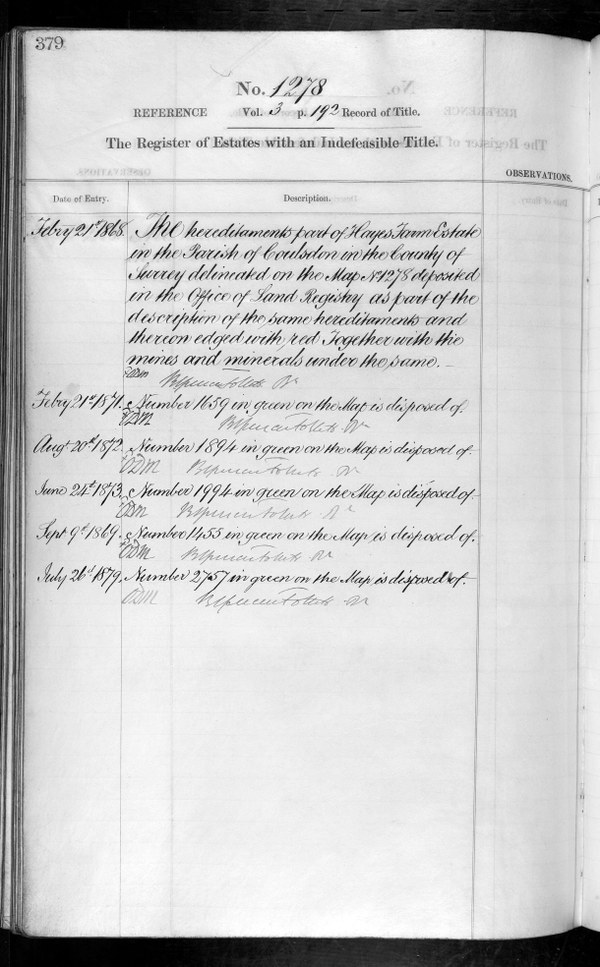 379
No. 1278
REFERENCE Vol. 3 p. 192 Record of Title.
The Register of Estates with an Indefeasible Title.
OBSERVATIONS.
Date of Entry. Description.
Febry 21st 1868. The hereditaments part of Hayes Farm Estate
in the Parish of Coulsdon in the County of
Surrey delineated on the Map No 1278 deposited
in the Office of Land Registry as part of the
description of the same hereditaments and
thereon edged with red Together with the
mines and minerals under the same.
ODM
Febry 21st 1871. Number 1659 in green on the Map is disposed of.
ODM
Augt 20th 1872. Number 1894 in green on the Map is disposed of.
ODM
June 24th 1873. Number 1994 in green on the Map is disposed of.
ODM
Sept 9th 1869. Number 1455 in green on the Map is disposed of.
ODM
July 26th 1879. Number 2757 in green on the Map is disposed of.
ODM